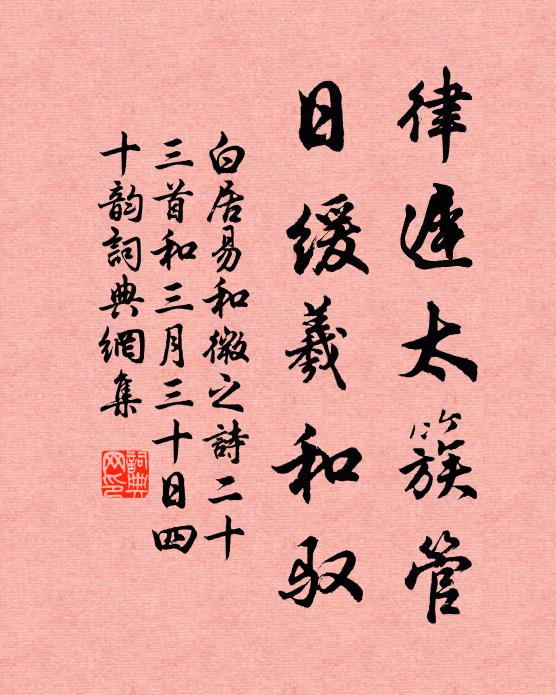 律遲太簇管
日緩羲和馭
白居易和微之詩二十
三首和三月三十日四
十韵詞典網集
詞典网印